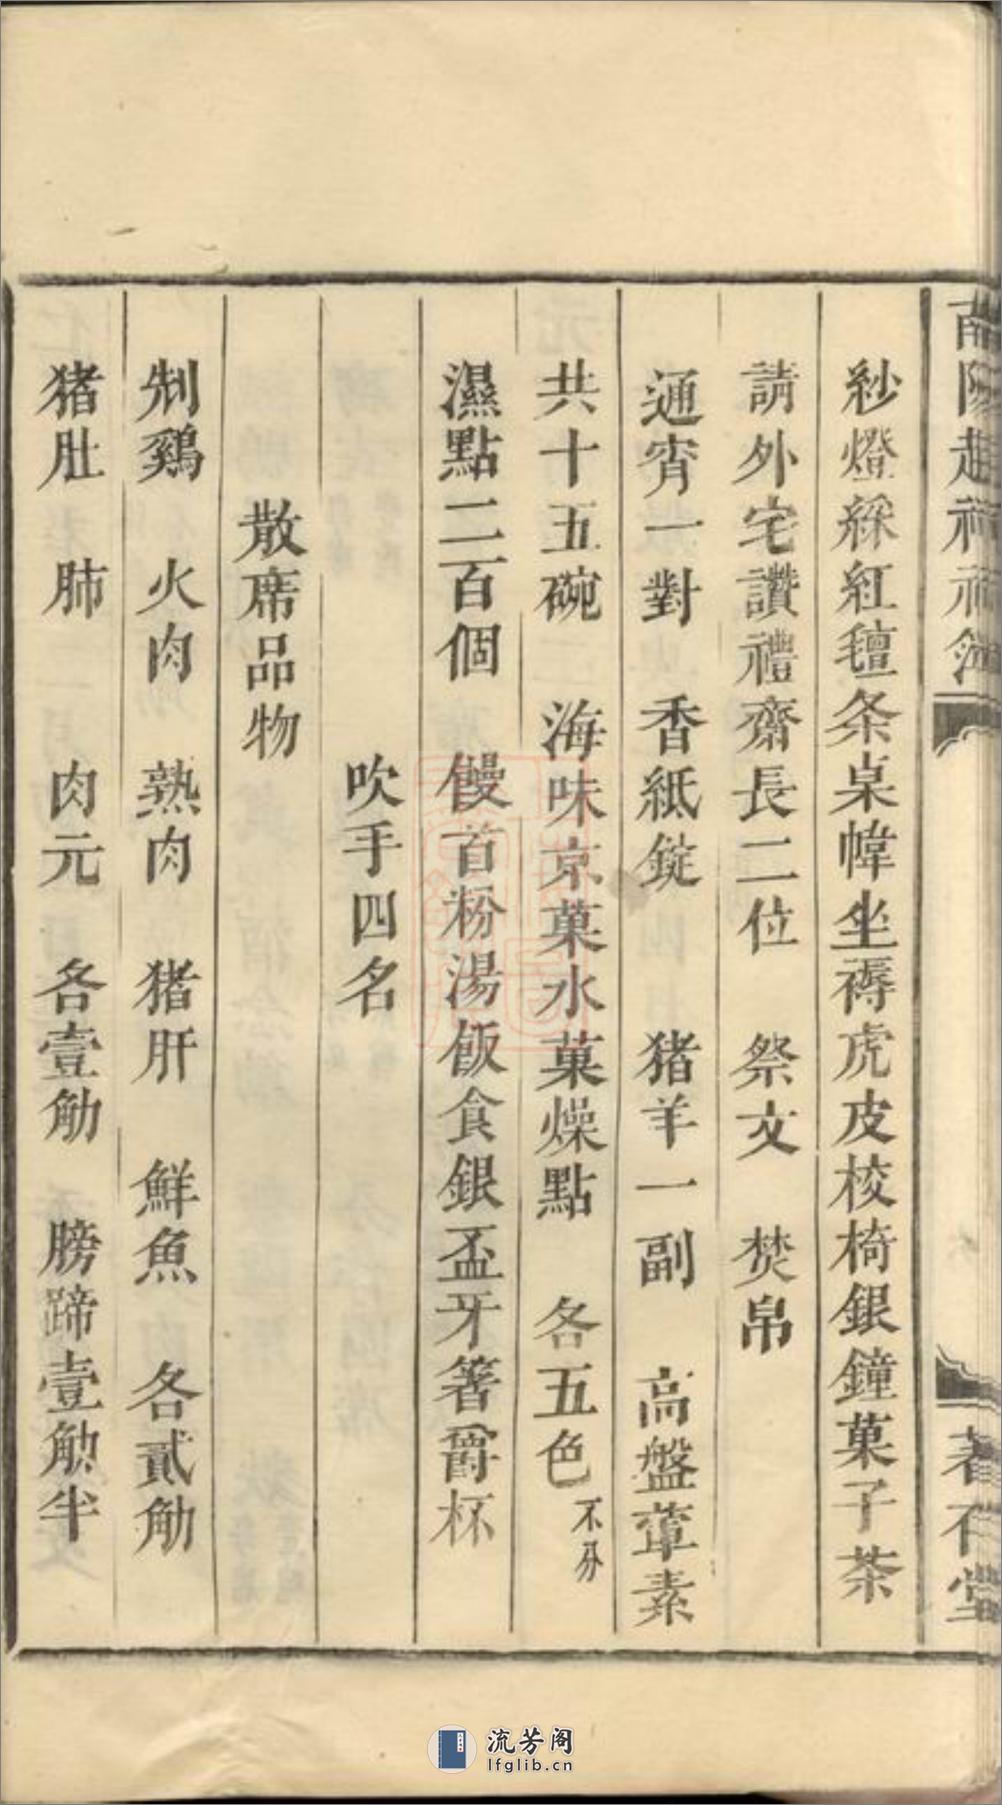 紗燈綵紅氊条桌幃坐褥虎皮校椅銀鐘菓子茶
請外宅讚禮齋長二位　祭文　焚帛
通宵一對　香紙錠　猪羊一副　高盤葷素
共十五碗　海味京菓水菓燥點　各五色不分
濕點二百個　饅首粉湯飯食銀盃牙箸爵杯
吹手四名
散席品物
刣鷄　火肉　熟肉　猪肝　鮮魚　各貳觔
猪肚　肺　肉元　各壹觔　膀蹄壹觔半
流芳阁
lfglib.cn